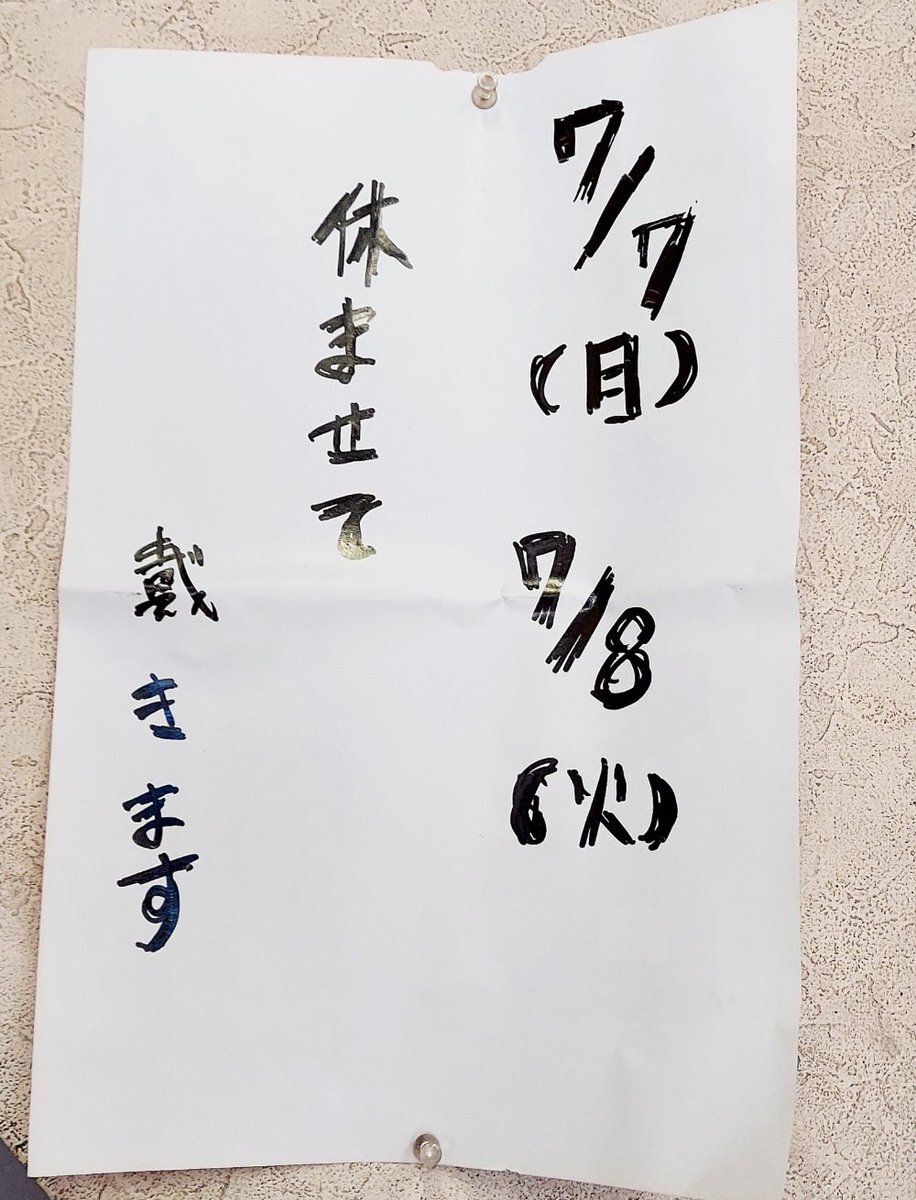 7/7(月)
7/8(火)
休ませて
戴きます